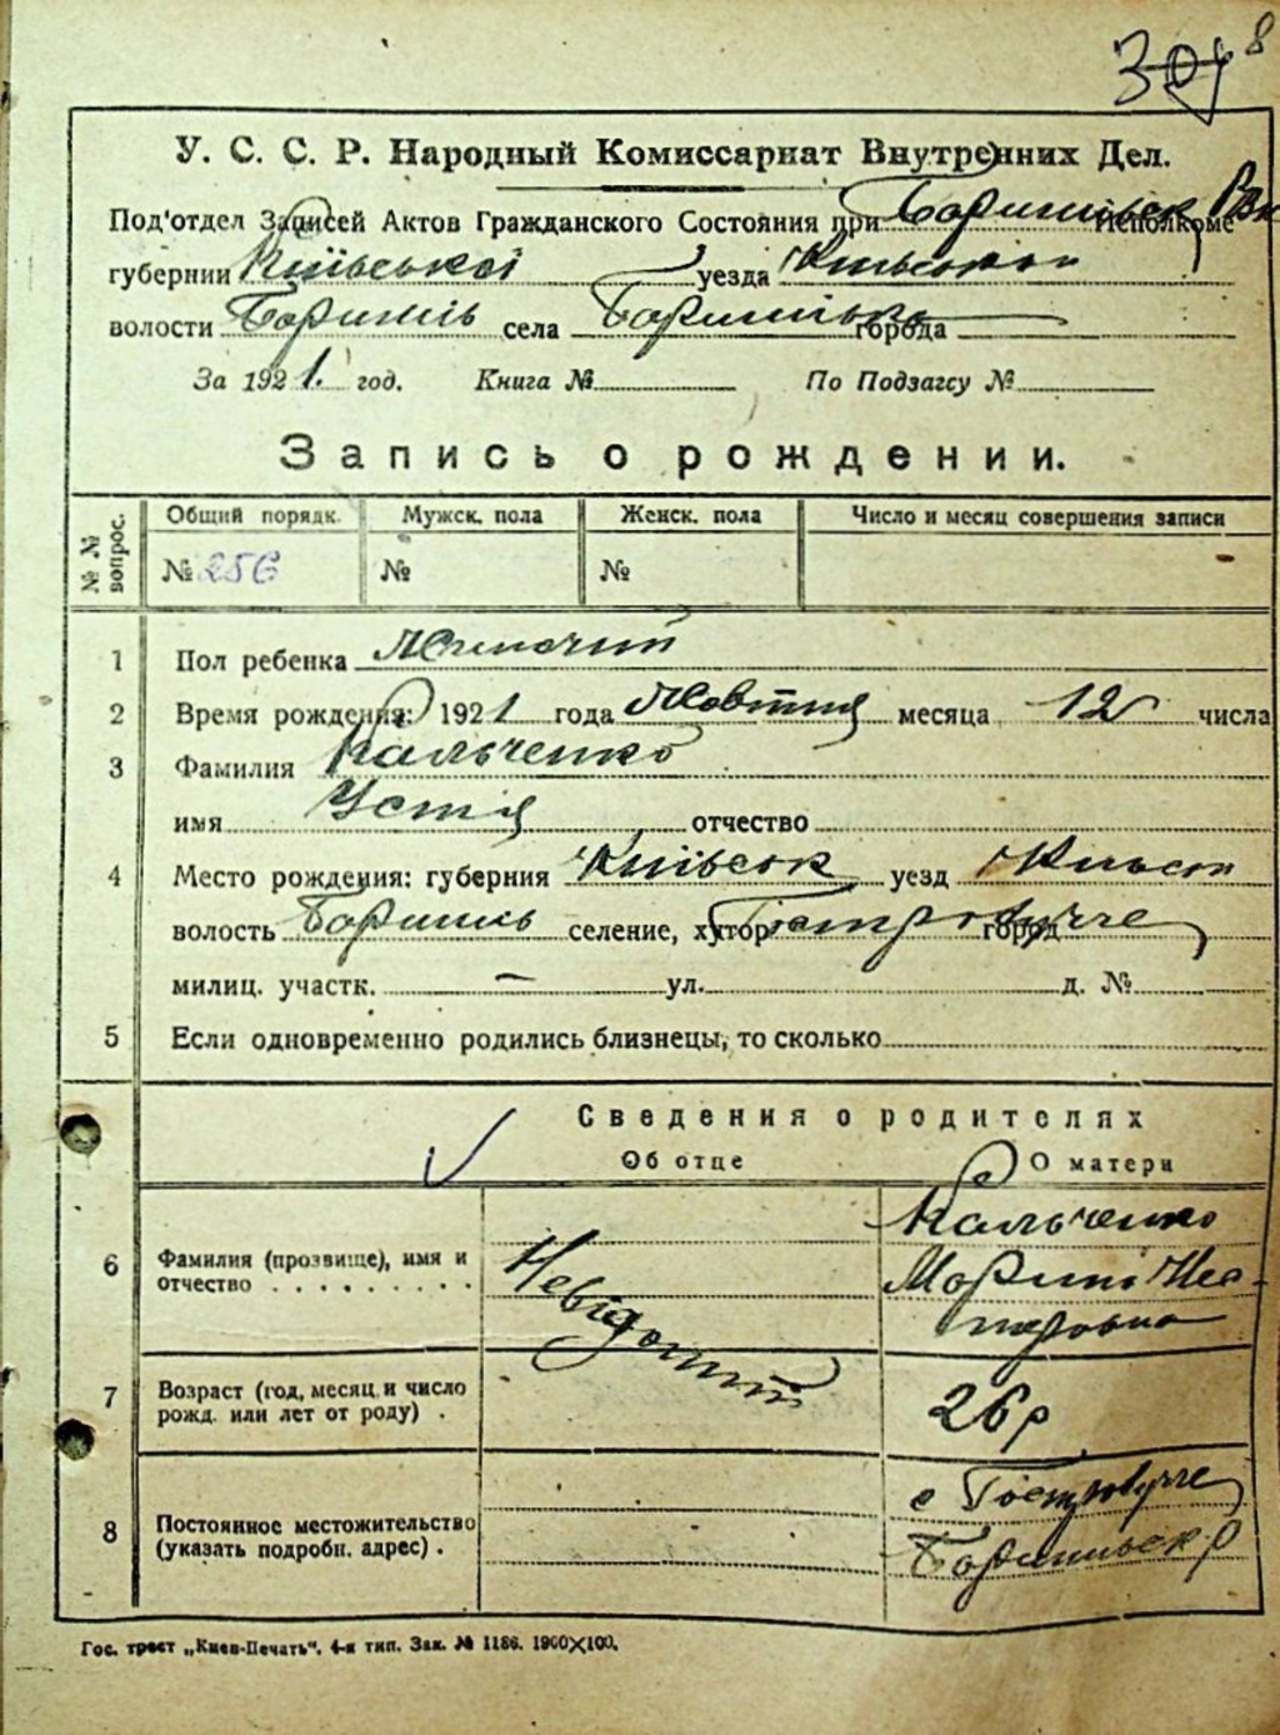 304 8
У. С. С. Р. Народный Комиссариат Внутренних Дел.
Под'отдел Записей Актов Гражданского Состояния при Исполкоме
губернии Київської уезда Київськ
волости Бориспіль села города
За 1921. год. Книга № По Подзагсу №
Запись о рождении.
№ № вопрос. Общий порядк. Мужск. пола Женск. пола Число и месяц совершения записи
№ 256 № №
1 Пол ребенка Жиночий
2 Время рождения: 1921 года Жовтня месяца 12 числа
3 Фамилия Кальченко
имя Устя отчество
4 Место рождения: губерния Київськ уезд Київськ
волость Бориспіль селение, хутор город
милиц. участк. — ул. д. №
5 Если одновременно родились близнецы, то сколько
Сведения о родителях
Об отце О матери
6 Фамилия (прозвище), имя и отчество Невідомий Кальченко
7 Возраст (год, месяц и число рожд. или лет от роду) . 26 р
8 Постоянное местожительство (указать подробн. адрес) . с
Гос. трест „Киев-Печать". 4-я тип. Зак. № 1186. 1900×100.